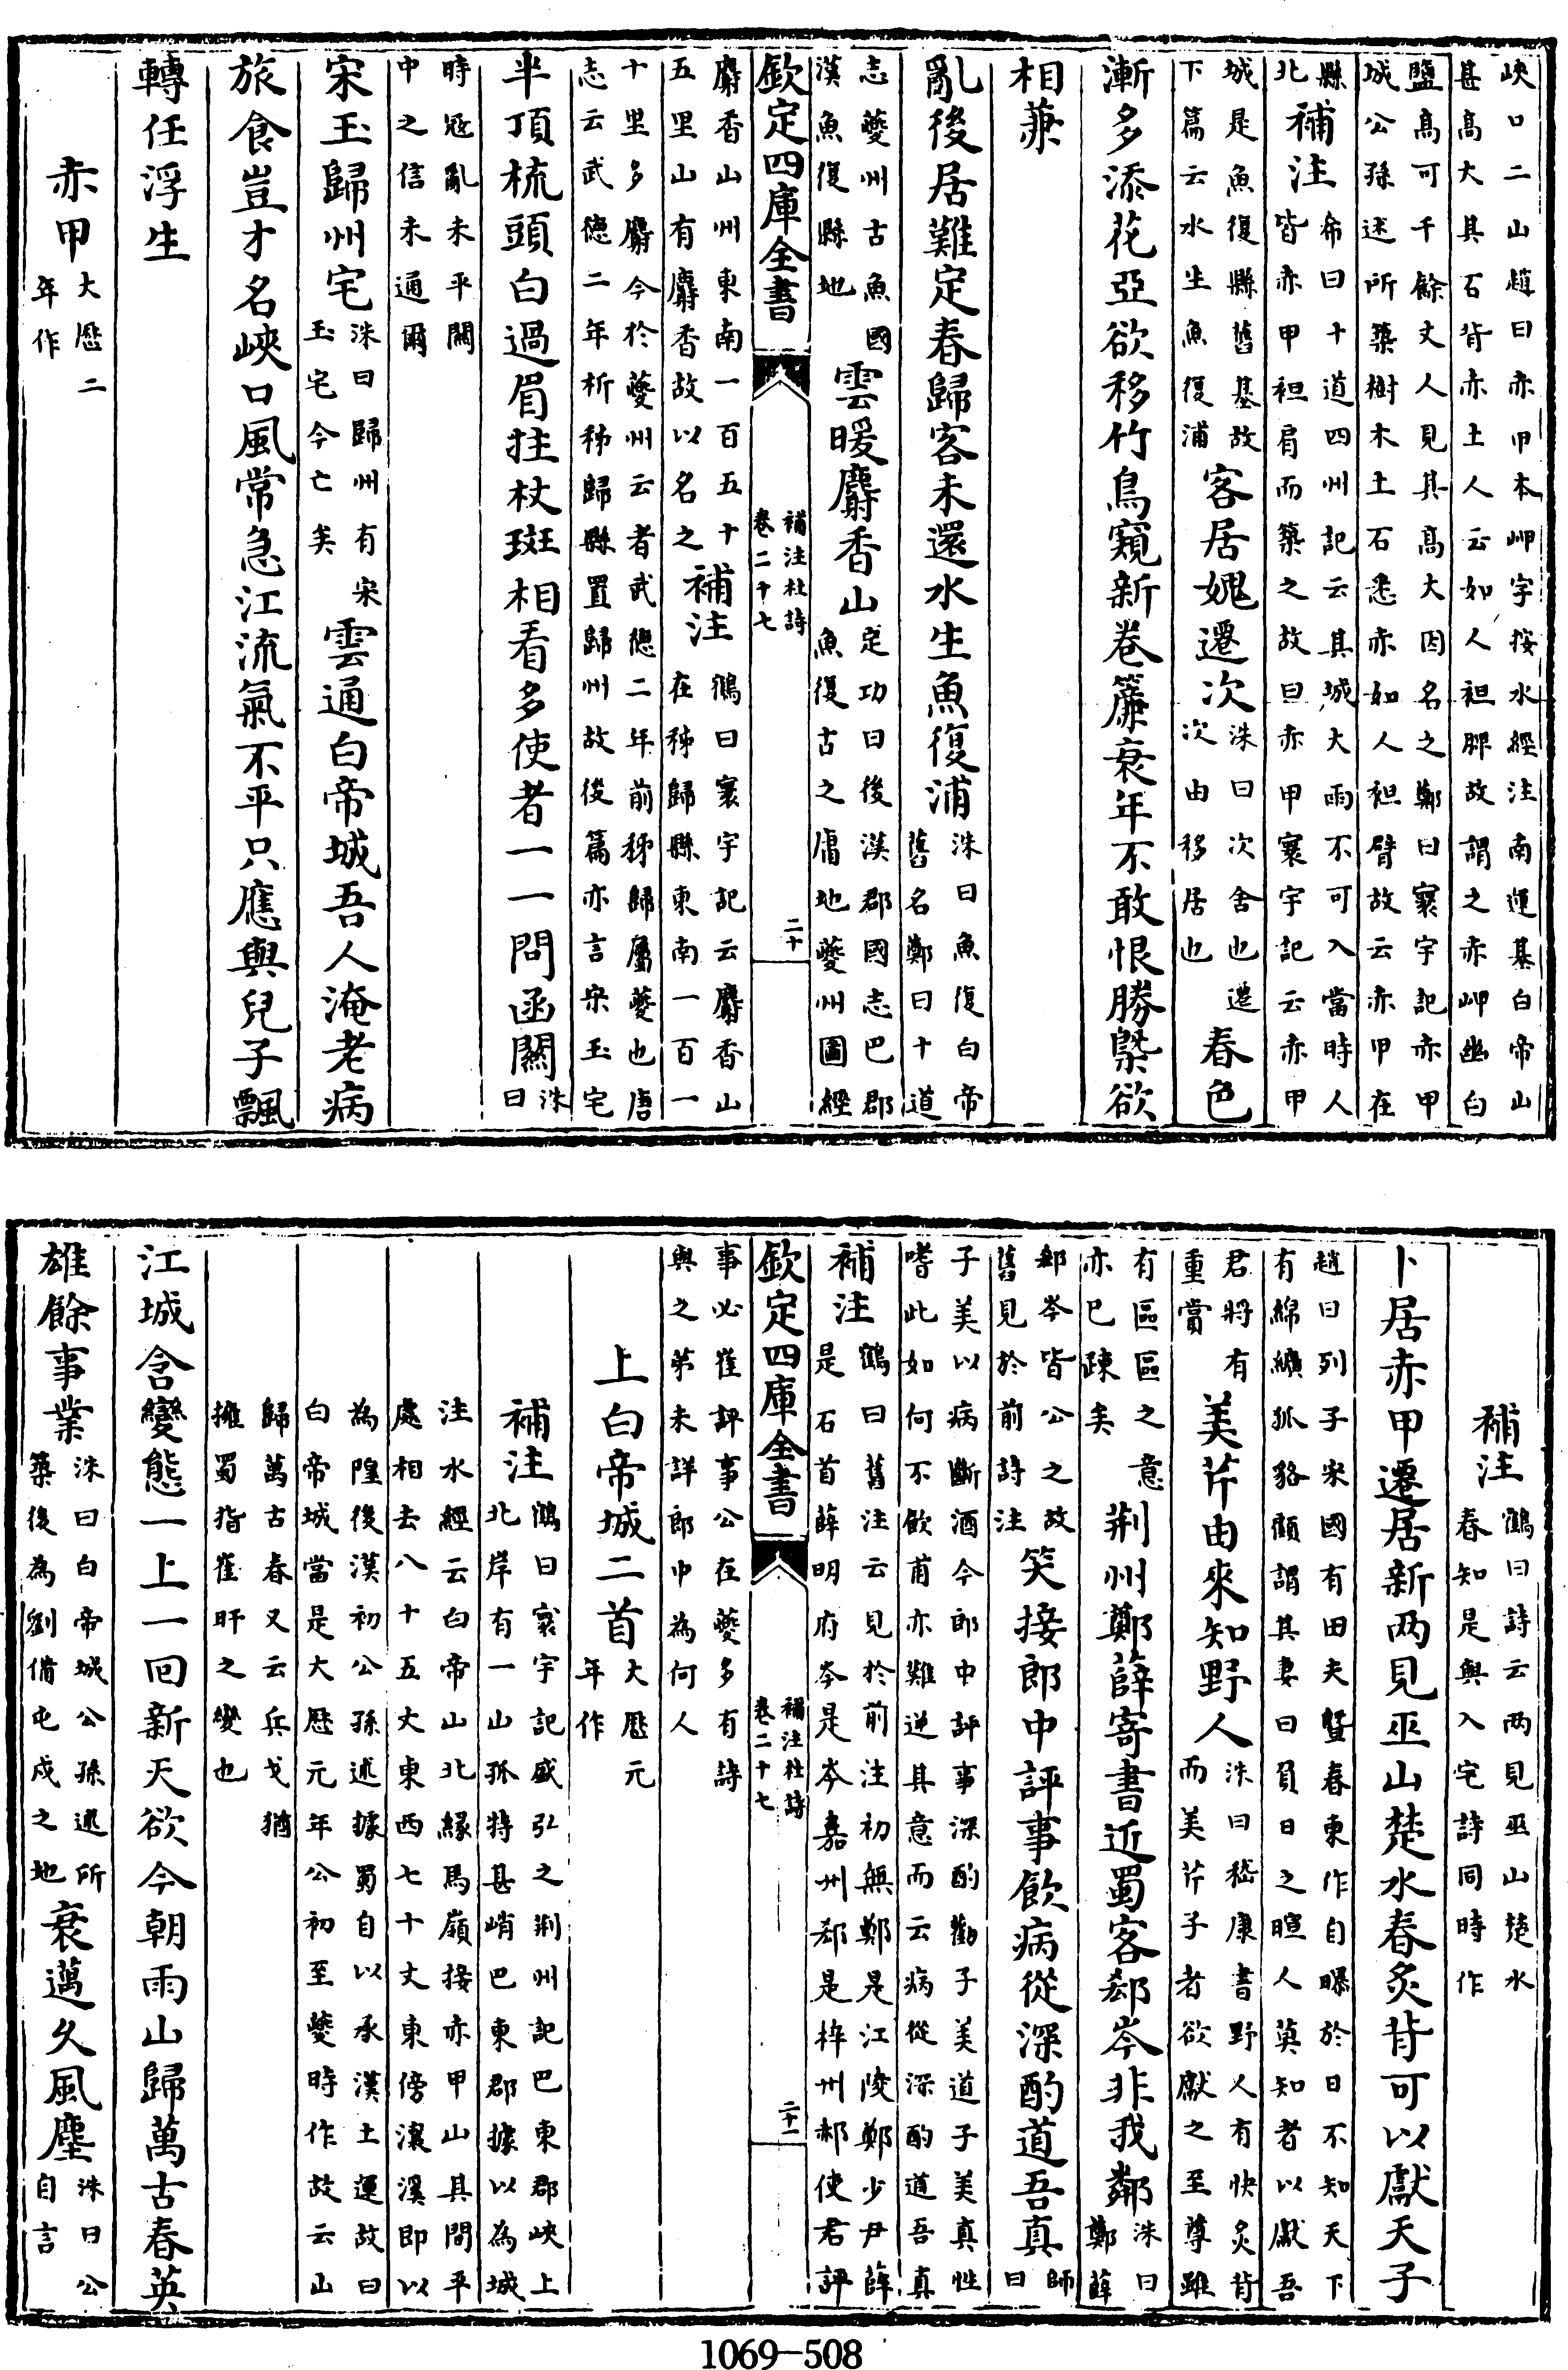 峽口二山趙曰赤甲本岬字按水經注南連基白帝山
甚髙大其石背赤土人云如人袒胛故謂之赤岬幽白
鹽髙可千餘丈人見其髙大因名之鄭曰寰宇記赤甲
城公孫述所築樹木土石悉赤如人袒臂故云赤甲在
縣北補注希曰十道四州記云其城大雨不可入當時人皆赤甲袒肩而築之故曰赤甲寰宇記云赤甲
城是魚復縣舊基故下篇云水生魚復浦客居媿遷次洙曰次舍也遷次由移居也春色
漸多添花亞欲移竹鳥窺新卷簾衰年不敢恨勝槩欲
相兼
亂後居難定春歸客未還水生魚復浦洙曰魚復白帝舊名鄭曰十道
志夔州古魚國漢魚復縣地雲暖麝香山定功曰後漢郡國志巴郡魚復古之庸地夔州圖經
欽定四庫全書
補注杜詩
卷二十七
二十
麝香山州東南一百五十五里山有麝香故以名之補注鶴曰寰宇記云麝香山在秭歸縣東南一百一
十里多麝今於夔州云者武徳二年前秭歸屬夔也唐
志云武德二年析秭歸縣置歸州故後篇亦言宋玉宅
半頂梳頭白過眉拄杖斑相看多使者一一問函關洙曰
時冦亂未平關
中之信未通爾
宋玉歸州宅洙曰歸州有宋玉宅今亡矣雲通白帝城吾人淹老病
旅食豈才名峽口風常急江流氣不平只應與兒子飄
轉任浮生
赤甲大厯二年作
補注鶴曰詩云两見巫山楚水春知是與入宅詩同時作
卜居赤甲遷居新两見巫山楚水春炙背可以獻天子
趙曰列子宋國有田夫暨春東作自曝於日不知天下
有綿纊狐貉顧謂其妻曰負日之暄人莫知者以獻吾
君將有重賞美芹由來知野人洙曰嵇康書野人有快炙背而美芹子者欲獻之至尊雖
有區區之意亦已疎矣荆州鄭薛寄書近蜀客郄岑非我鄰洙曰鄭薛
郄岑皆公之故舊見於前詩注笑接郎中評事飲病從深酌道吾真師曰
子美以病斷酒今郎中評事深酌勸子美道子美真性
嗜此如何不飲甫亦難逆其意而云病從深酌道吾真
補注鶴曰舊注云見於前注初無鄭是江陵鄭少尹薛是石首薛明府岑是岑嘉州郄是梓州郝使君評
欽定四庫全書
補注杜詩
卷二十七
二十一
事必崔評事公在夔多有詩
與之弟未詳郎中為何人
上白帝城二首大厯元年作
補注鶴曰寰宇記盛弘之荆州記巴東郡峽上北岸有一山孤特甚峭巴東郡據以為城
注水經云白帝山北縁馬嶺接赤甲山其間平
處相去八十五丈東西七十丈東傍瀼溪即以
為隍後漢初公孫述據蜀自以承漢土運故曰
白帝城當是大厯元年公初至夔時作故云山
歸萬古春又云兵戈猶
擁蜀指崔旰之變也
江城含變態一上一回新天欲今朝雨山歸萬古春英
雄餘事業洙曰白帝城公孫述所築後為劉備屯戍之地衰邁久風塵洙曰公自言
1069—508